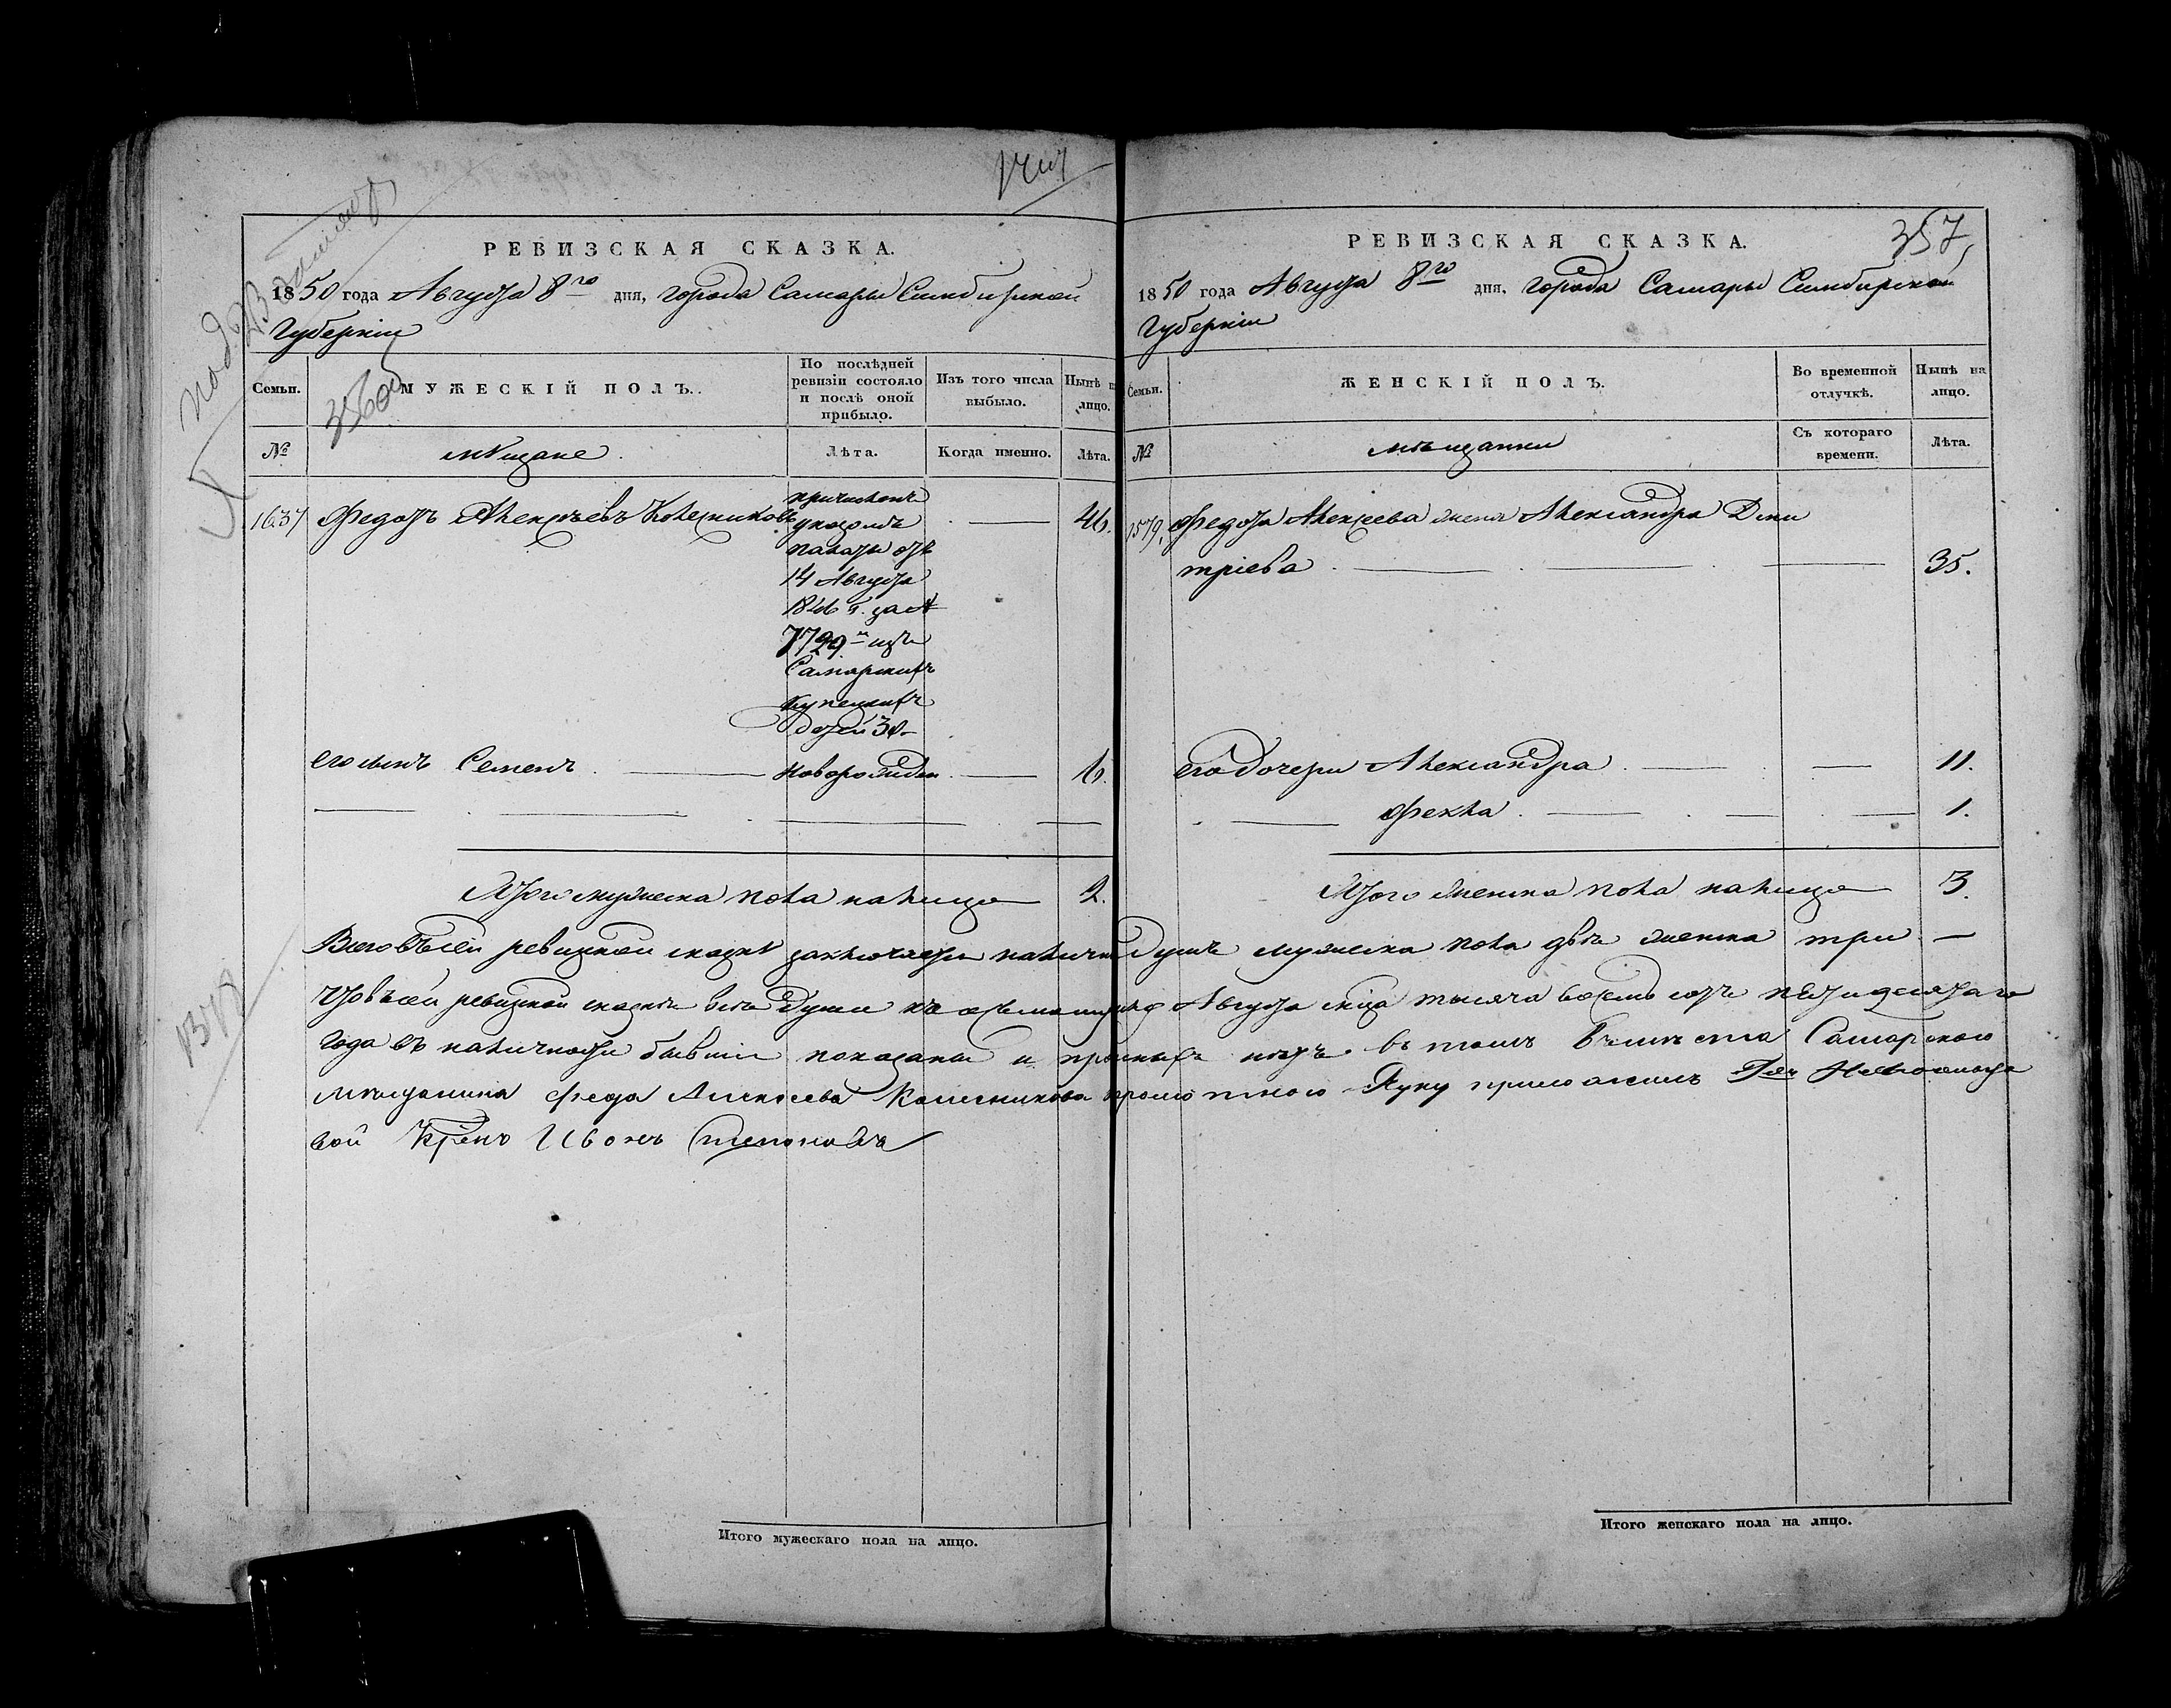 РЕВИЗСКАЯ СКАЗКА.
1850 года Августа 8го дня, города Самары Симбирской
Губернии
Семьи.
МУЖЕСКІЙ ПОЛЪ.
По послѣдней
ревизіи состояло
и послѣ оной
прибыло.
Изъ того числа
выбыло.
Нынѣ на
лицо.
№
мѣщане
Лѣта.
Когда именно.
Лѣта.
1637 Федотъ Алексѣевъ Колесниковъ
причисленъ
указомъ
палаты отъ
14 Августа
7799м изъ
Самарскихъ
купеческихъ
детей
46.
его сынъ Семенъ новорожден 6.
Итого мужеска пола налицо 2.
Итого мужескаго пола на лицо.
357
РЕВИЗСКАЯ СКАЗКА.
1850 года Августа 8го дня, города Самары Симбирской
Губернии
Семьи.
ЖЕНСКІЙ ПОЛЪ.
Во временной
отлучкѣ.
Нынѣ на
лицо.
№
мѣщанки
Съ котораго
времени.
Лѣта.
1579. Федота Алексеева жена Александра Дми
тріева 35.
его дочери Александра 11.
Фекла 1.
Итого женска пола налицо 3.
Всего въ сей ревизской сказкѣ заключается налично душъ мужеска пола двѣ женска три
Что въ сей ревизской сказкѣ все души къ осьмому Августа мца тысяча восемь сотъ пятидесятаго
года въ наличности бывшіе показаны и прописныхъ нетъ въ томъ вместа Самарского
мещанина Федота Алексеева Колесникова Руку приложилъ
вой Иванъ Степановъ
Итого женскаго пола на лицо.